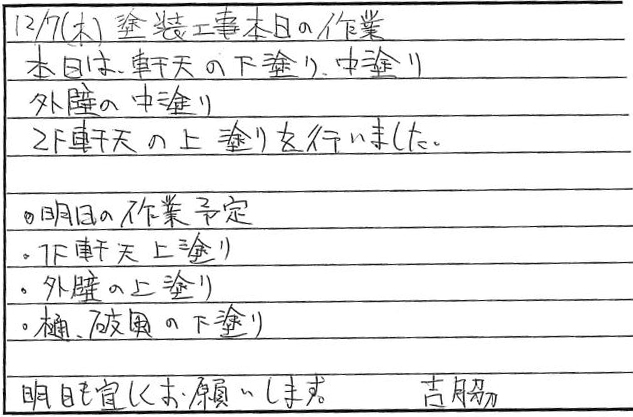 12/7(木) 塗装工事本日の作業
本日は、軒天の下塗り、中塗り
外壁の中塗り
2F軒天の上塗りを行いました。
。明日の作業予定
・1F軒天上塗り
・外壁の上塗り
。樋、破風の下塗り
明日も宜しくお願いします。 吉脇